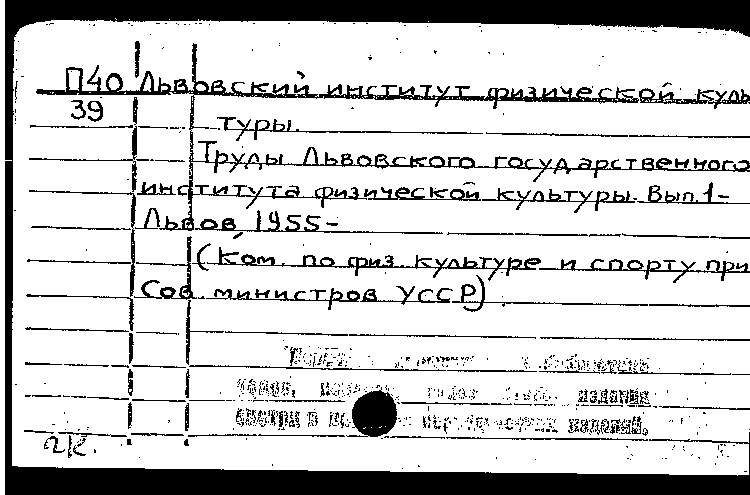 П40 Львовский институт физической куль
39 туры.
Труды Львовского государственного
института физической культуры. Вып.1-
Львов, 1955-
(Ком. по физ. культуре и спорту при
Сов. министров УССР).
издания
смотри в изданий.
2к.